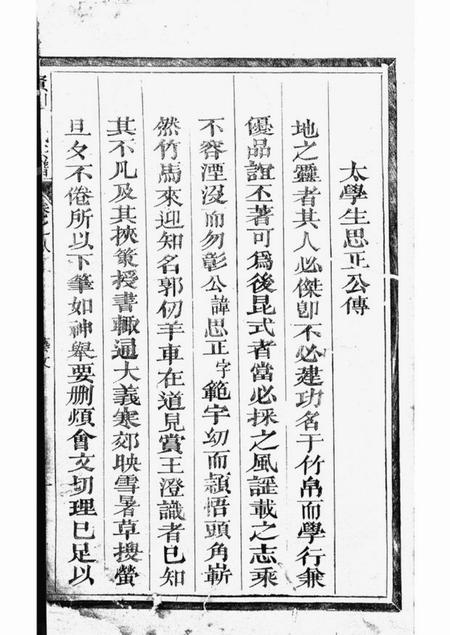 太學生思正公傳
地之靈者其人必傑卽不必建功名于竹帛而學行兼
優品誼丕著可爲後昆式者當必採之風謠載之志乘
不容湮沒而勿彰公諱思正字範宇幼而穎悟頭角嶄
然竹馬來迎知名郭伋羊車在道見賞王澄識者已知
其不凡及其挾策授書輙通大義寒郊映雪暑草搜螢
旦夕不倦所以下筆如神舉要刪煩會文切理已足以
譜
卷之八
藝文